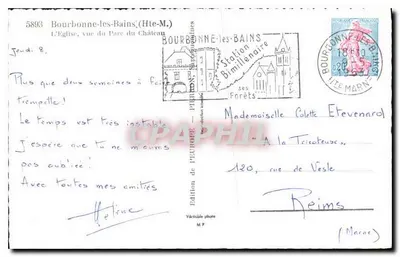 5893 Bourbonne-les-Bains (Hte-M.)
L'Eglise, vue du Parc du Château
Jeudi 8,
Plus que deux semaines à faire
trempette !
Le temps est très instable
J'espère que tu ne m'as
pas oubliée !
Avec toutes mes amitiés
Hélène
Edition de
Véritable photo
BOURBONNE-les-BAINS
Station
Bimillénaire
ses
Forêts
BOURBONNE-LES-BAINS
18H
HTE MARNE
Mademoiselle Colette Etevenard
A la
120, rue de Vesle
Reims
(Marne)